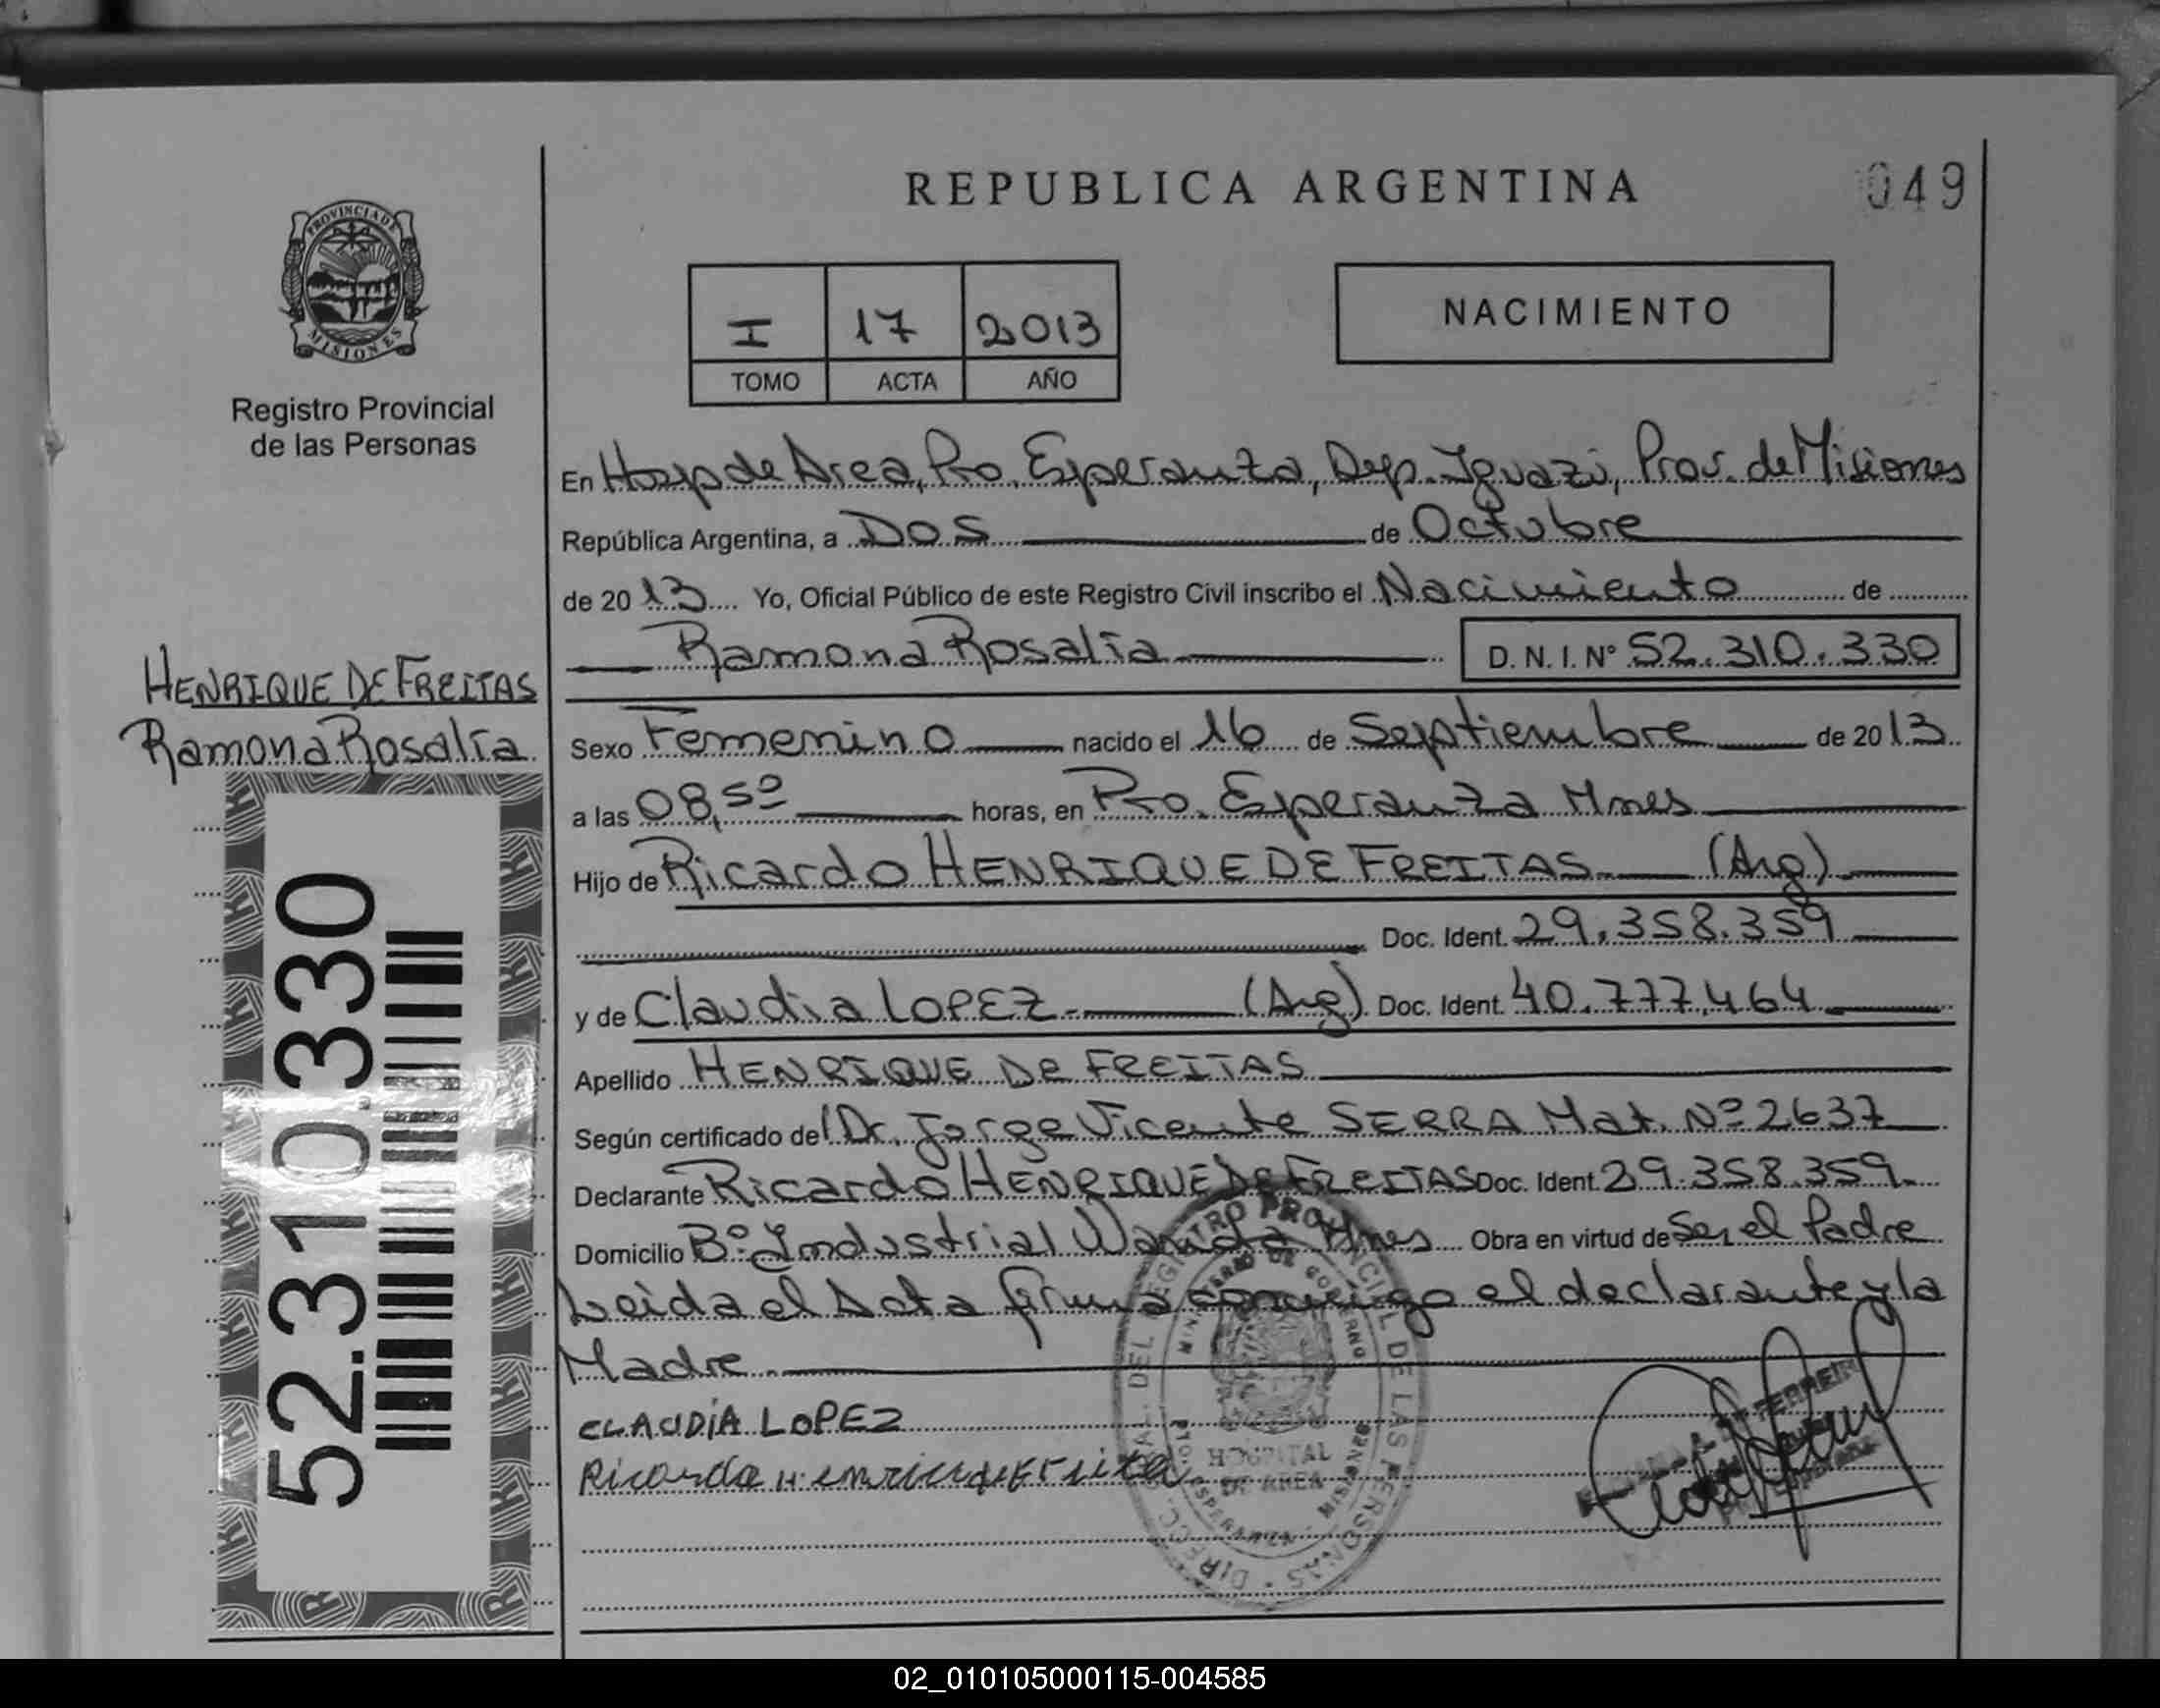 REPUBLICA ARGENTINA
049
PROVINCIA DE
MISIONES
Registro Provincial
de las Personas
I 17 2013
TOMO ACTA AÑO
NACIMIENTO
En Hosp de Area, Pto. Esperanza, Dep. Iguazú, Prov. de Misiones
República Argentina, a Dos de Octubre
de 2013 Yo, Oficial Público de este Registro Civil inscribo el Nacimiento de
Ramona Rosalía D. N. I. N° 52.310.330
HENRIQUE DE FREITAS
Ramona Rosalía
Sexo Femenino nacido el 16 de Septiembre de 2013
a las 08,50 horas, en Pto. Esperanza Mnes
Hijo de Ricardo HENRIQUE DE FREITAS (Arg)
Doc. Ident. 29.358.359
y de Claudia LOPEZ (Arg) Doc. Ident. 40.777.464
Apellido HENRIQUE DE FREITAS
Según certificado del Dr. Jorge Vicente SERRA Mat. Nº 2637
Declarante Ricardo HENRIQUE DE FREITAS Doc. Ident. 29.358.359.
Domicilio Bº Industrial Wanda Mnes Obra en virtud de Ser el Padre
Leida el Acta firma conmigo el declarante y la
Madre
CLAUDIA LOPEZ
52.310.330
DIRECC. GRAL. DEL REGISTRO PROVINCIAL DE LAS PERSONAS
MINISTERIO DE GOBIERNO
HOSPITAL
DE AREA
PTO. ESPERANZA MISIONES
02_010105000115-004585